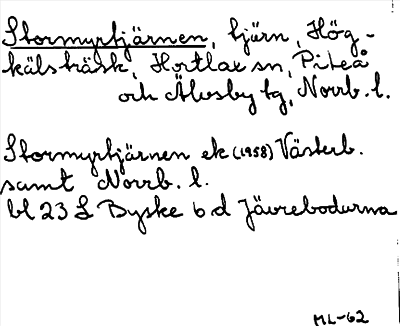 Stormyrtjärnen, tjärn, Hög-
kälsträsk, Hortlax sn, Piteå
och Älvsby tg, Norrb. l.
Stormyrtjärnen ek (1958) Västerb.
samt Norrb. l.
bl 23 L Byske 6 d Jävrebodarna
ML-62